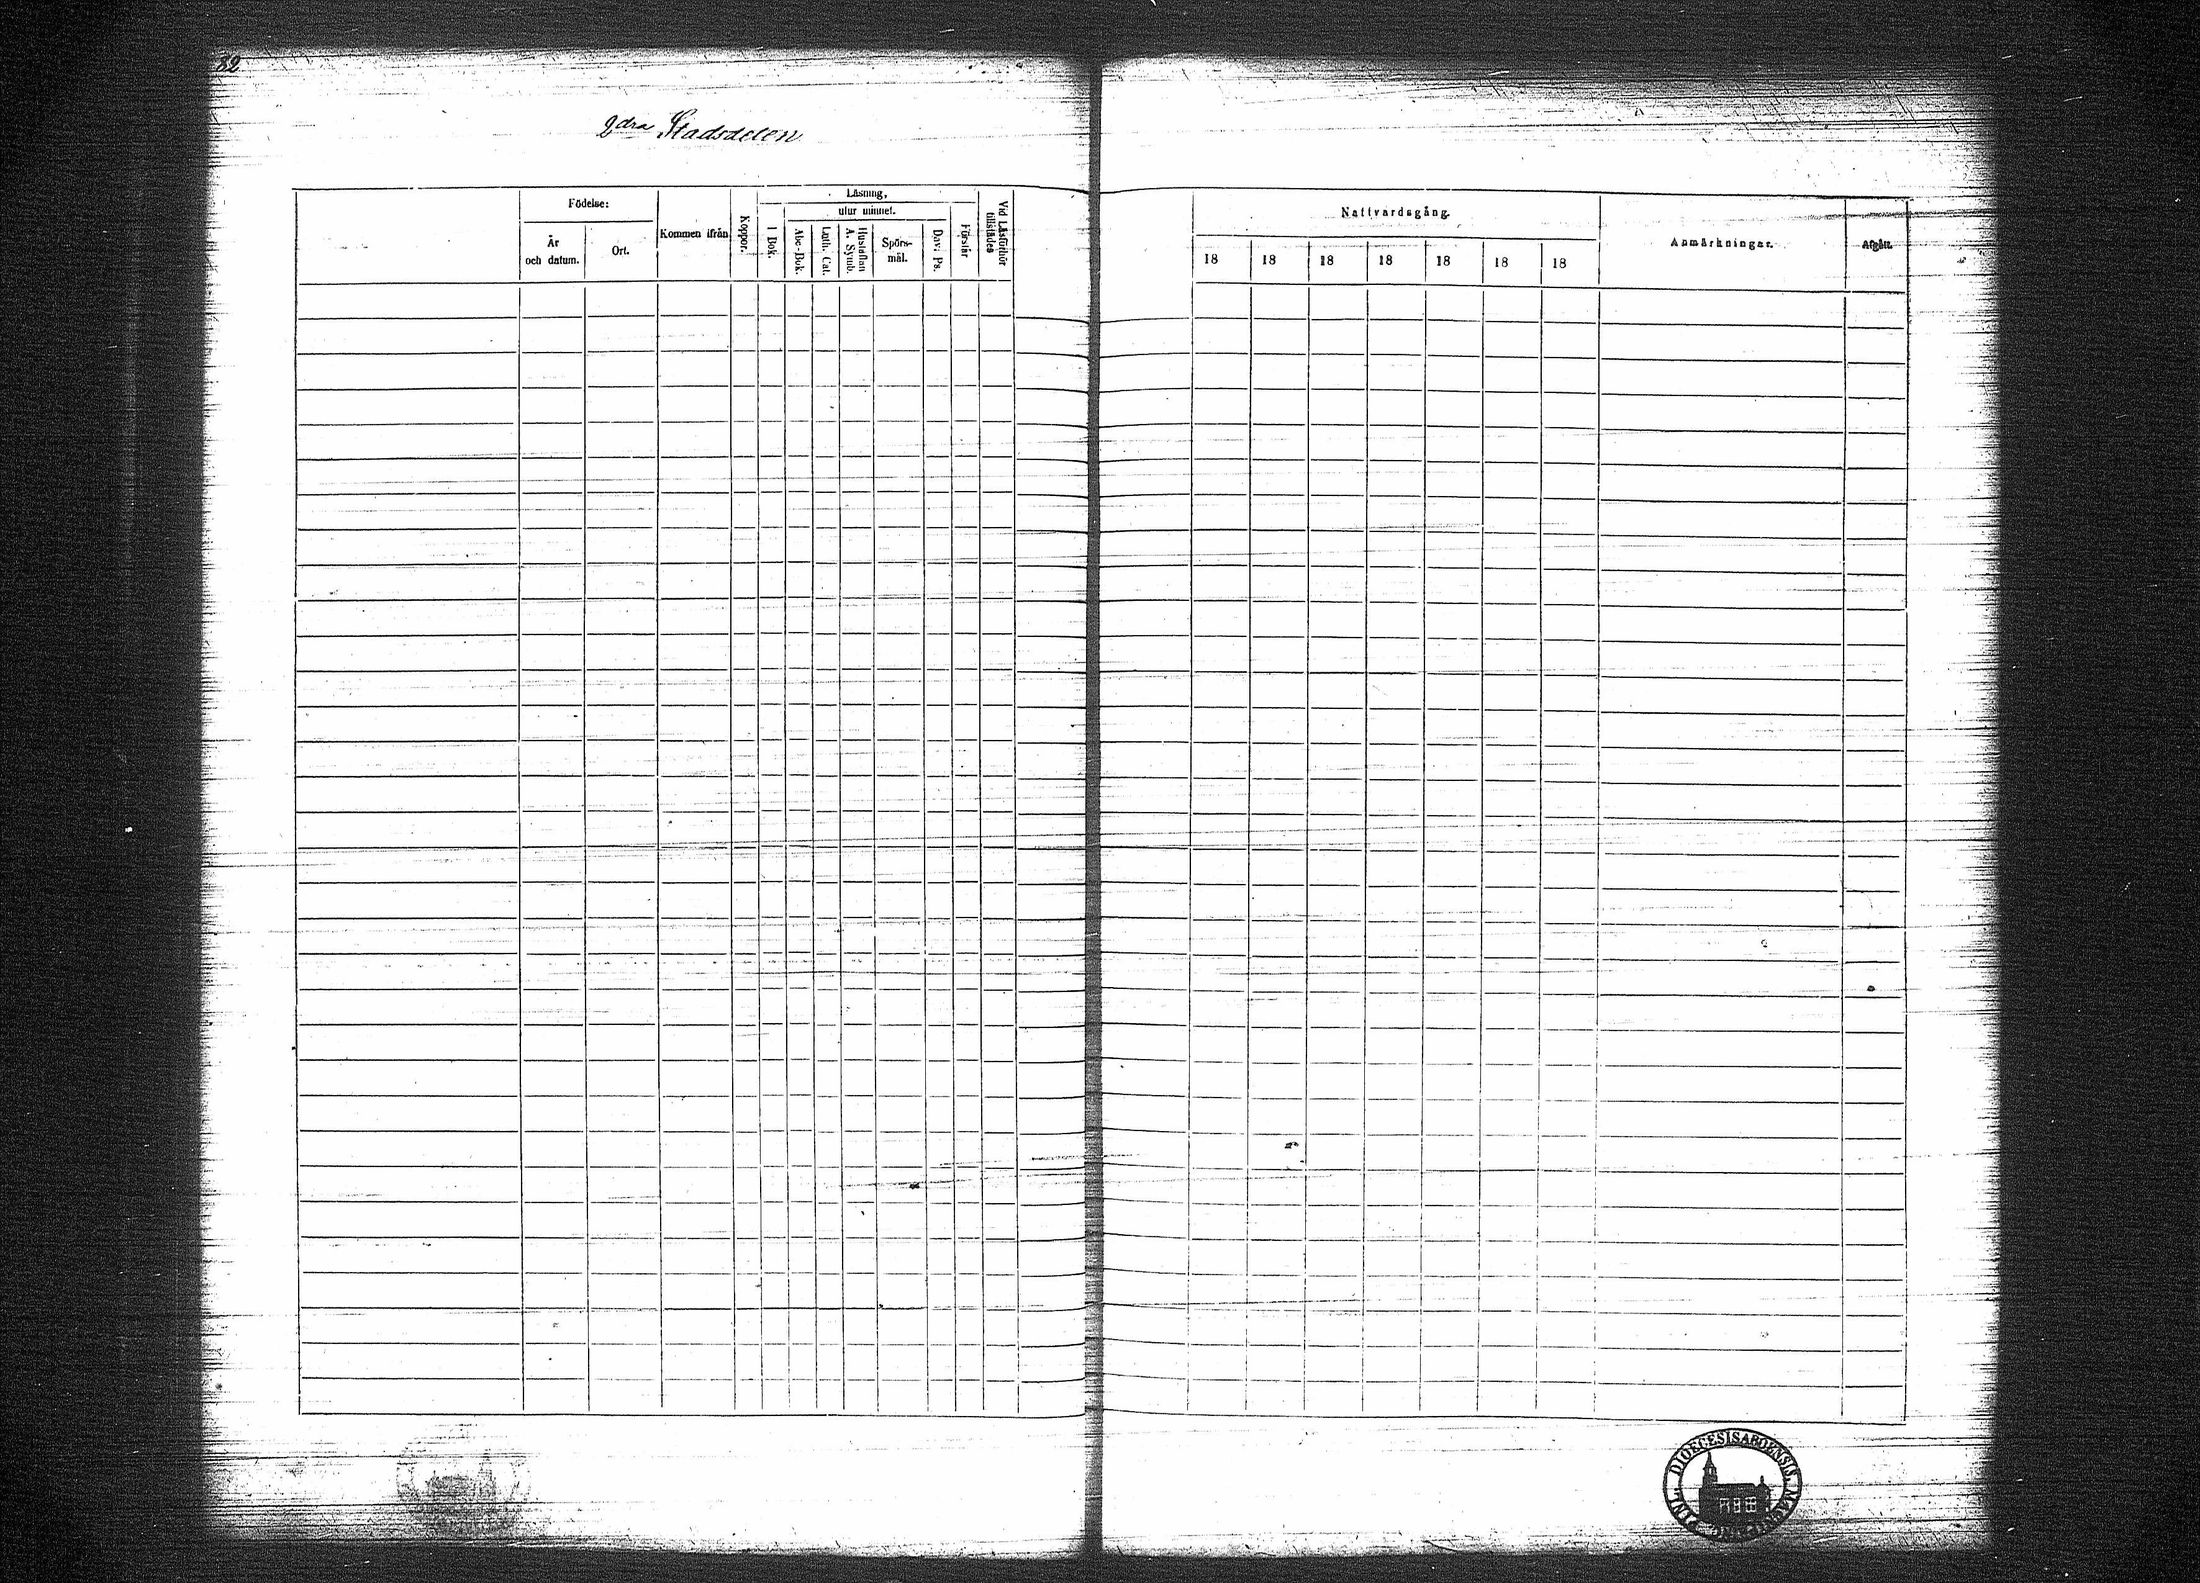 82
2dra Stadsdelen
Födelse:
År
och datum.
Ort.
Kommen ifrån
Koppor.
Läsning,
I Bok.
utur minnet.
Abc-Bok.
Luth. Cat.
Hustaflan
A. Symb.
Spörs-
mål.
Dav. Ps.
Förstår
Vid Läsförhör
tillstädes
Nattvardsgång.
18 18 18 18 18 18 18
Anmärkningar.
Afgått.
DIOECESIS ABOENSIS